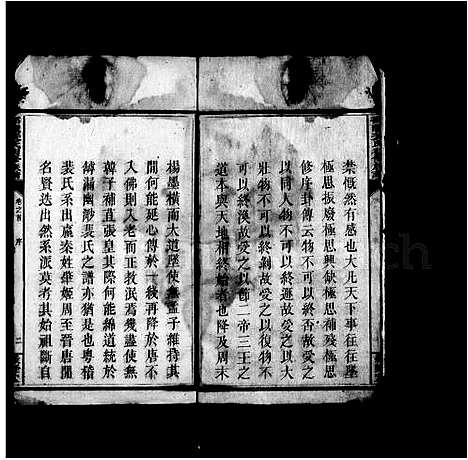 桊慨然有感也大凡天下事往往墜
極思振廢極思興缺極思補殘極思
修序卦傳云物不可以終否故受之
以同人物不可以終遯故受之以大
壯物不可以終剝故受之以復物不
可以終渙故受之以節二帝三王之
道本與天地相終始者也降及周末
楊墨橫而大道墜使無孟子維持其
間何能延心傳於一綫再降於唐不
入佛則入老而正教泯焉幾盡使無
韓子補苴張皇其際何能綿道統於
罅漏幽渺裴氏之譜亦猶是也粵稽
裴氏系出嬴秦姓肇姬周至晉唐間
名賢迭出然系派莫考其始祖斷自
卷之首 序 二